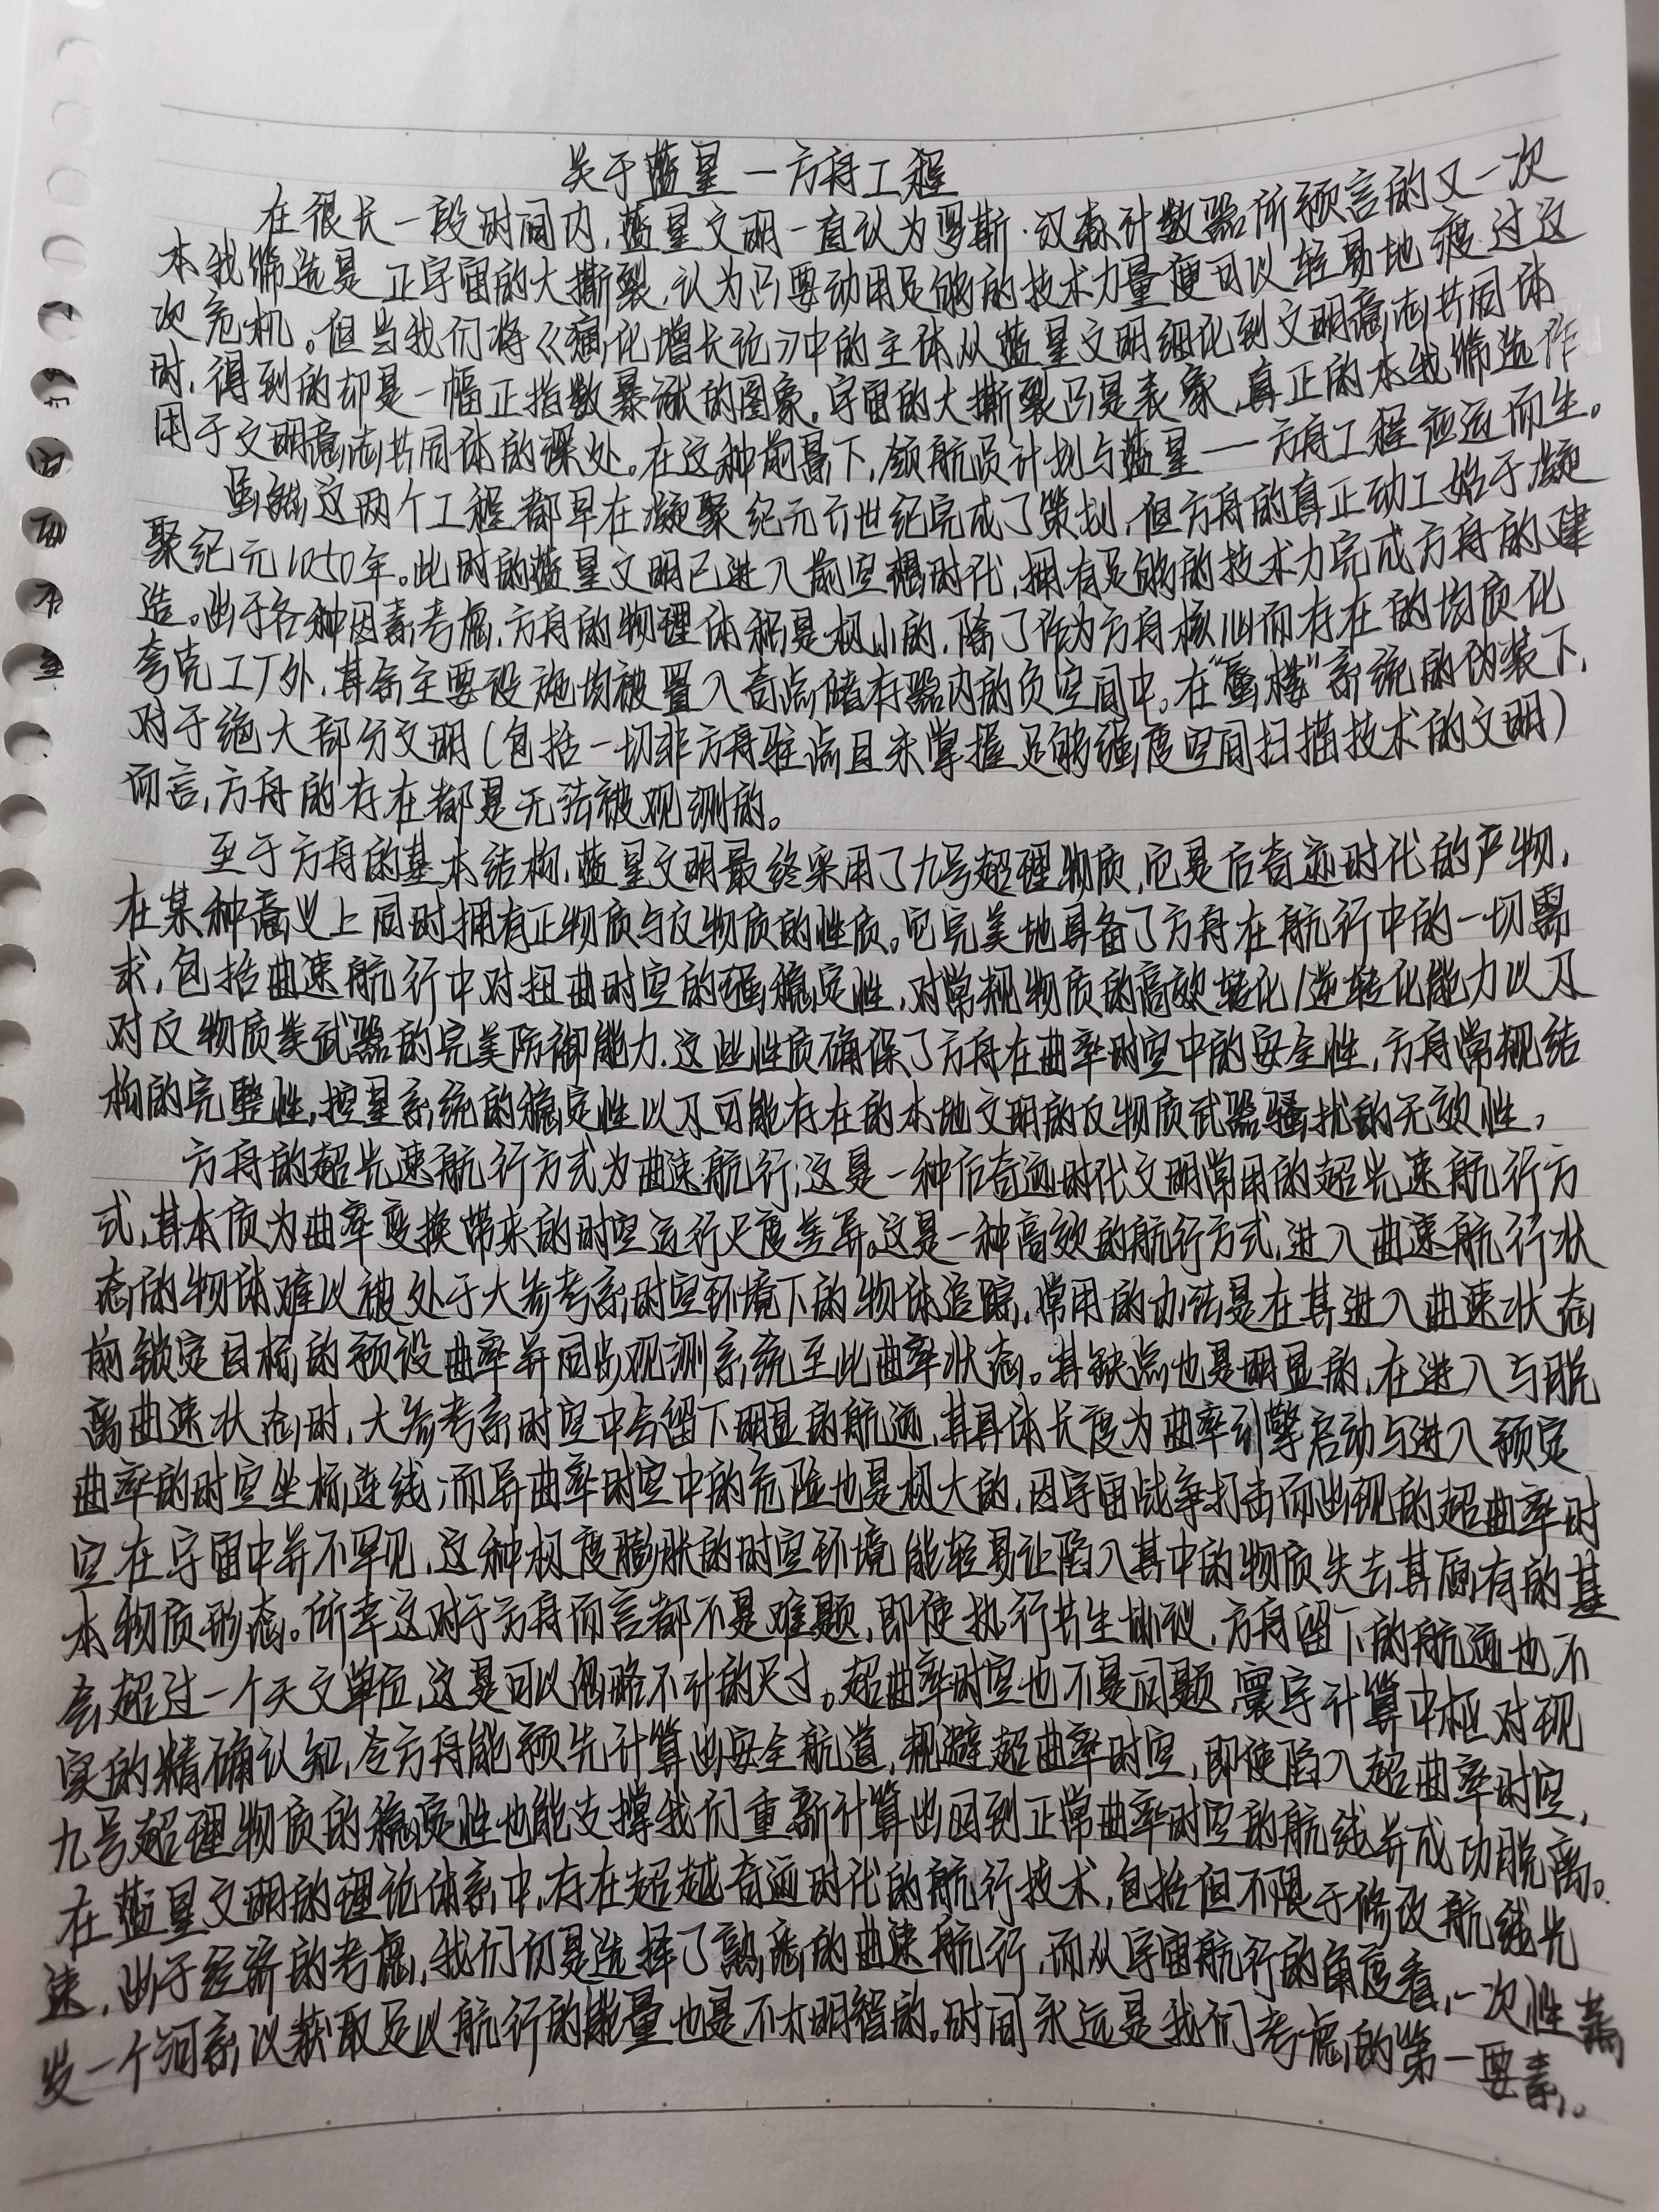 关于蓝星一方舟工程
在很长一段时间内,蓝星文明一直认为罗斯·汉森计数器所预言的又一次
本我筛选是正宇宙的大撕裂,认为只要动用足够的技术力量便可以轻易地渡过这
次危机。但当我们将《演化增长论》中的主体从蓝星文明细化到文明意志共同体
时,得到的却是一幅正指数暴涨的图象。宇宙的大撕裂只是表象,真正的本我筛选作
用于文明意志共同体的深处。在这种前景下,领航员计划与蓝星一方舟工程应运而生。
虽然这两个工程都早在凝聚纪元元世纪完成了策划,但方舟的真正动工始于凝
聚纪元1050年。此时的蓝星文明已进入前空想时代,拥有足够的技术力完成方舟的建
造。出于各种因素考虑,方舟的物理体积是极小的,除了作为方舟核心而存在的均质化
夸克工厂外,其余主要设施均被置入奇点储存器内的负空间中。在“蜃楼”系统的伪装下,
对于绝大部分文明(包括一切非方舟驻点且未掌握足够强度空间扫描技术的文明)
而言,方舟的存在都是无法被观测的。
至于方舟的基本结构,蓝星文明最终采用了九号超理物质,它是后奇迹时代的产物,
在某种意义上同时拥有正物质与反物质的性质。它完美地具备了方舟在航行中的一切需
求,包括曲速航行中对扭曲时空的强稳定性,对常规物质的高效转化/逆转化能力以及
对反物质类武器的完美防御能力.这些性质确保了方舟在曲率时空中的安全性,方舟常规结
构的完整性,控星系统的稳定性以及可能存在的本地文明的反物质武器骚扰的无效性。
方舟的超光速航行方式为曲速航行;这是一种后奇迹时代文明常用的超光速航行方
式,其本质为曲率变换带来的时空运行尺度差异。这是一种高效的航行方式,进入曲速航行状
态的物体难以被处于大参考系时空环境下的物体追踪,常用的办法是在其进入曲速状态
前锁定目标的预设曲率并同步观测系统至此曲率状态。其缺点也是明显的,在进入与脱
离曲速状态时,大参考系时空中会留下明显的航迹,其具体长度为曲率引擎启动与进入预定
曲率的时空坐标连线;而异曲率时空中的危险也是极大的,因宇宙战争打击而出现的超曲率时
空在宇宙中并不罕见,这种极度膨胀的时空环境能轻易让陷入其中的物质失去其原有的基
本物质形态。所幸这对于方舟而言都不是难题,即使执行共生协议,方舟留下的航迹也不
会超过一个天文单位,这是可以忽略不计的尺寸。超曲率时空也不是问题,寰宇计算中枢对现
实的精确认知,令方舟能预先计算出安全航道,规避超曲率时空,即使陷入超曲率时空,
九号超理物质的稳定性也能支撑我们重新计算出回到正常曲率时空的航线并成功脱离。
在蓝星文明的理论体系中,存在超越奇迹时代的航行技术,包括但不限于修改航线光
速,出于经济的考虑,我们仍是选择了熟悉的曲速航行,而从宇宙航行的角度看,一次性蒸
发一个河系以获取足以航行的能量也是不太明智的。时间永远是我们考虑的第一要素。